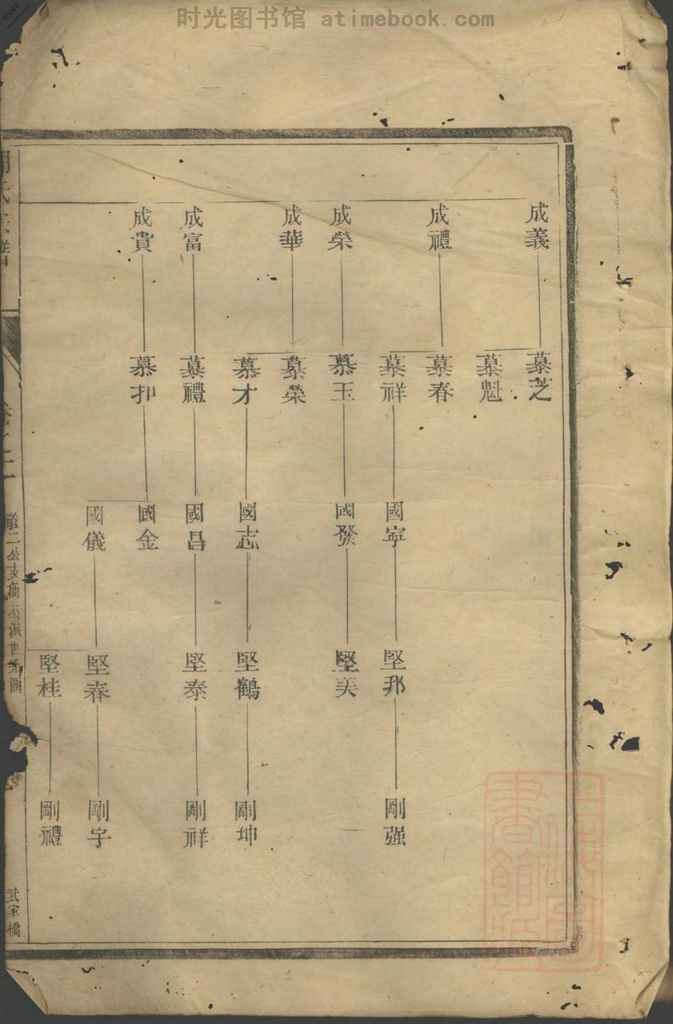 时光图书馆 atimebook.com
成義
成禮
成榮
成華
成富
成貴
慕芝
慕魁
慕春
慕祥
慕玉
慕榮
慕才
慕禮
慕邦
國寧
國發
國志
國昌
國金
國儀
堅邦
堅美
堅鶴
堅泰
堅春
堅桂
剛强
剛坤
剛祥
剛宇
剛禮
武家橋